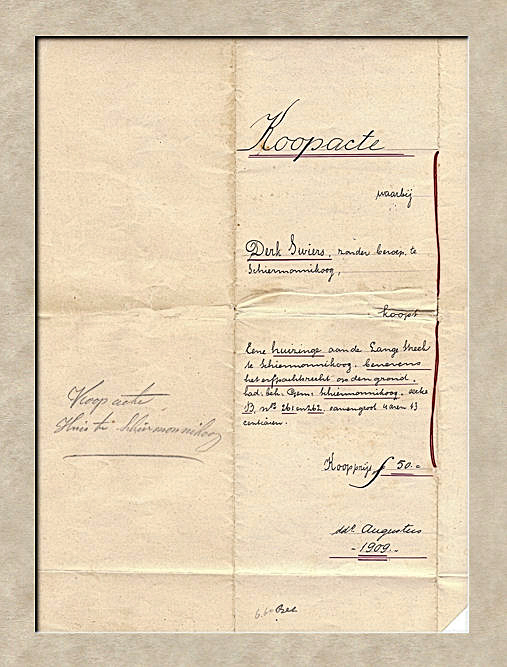 Koopacte
waarbij
Derk Swiers, zonder beroep, te
Schiermonnikoog,
koopt
Eene huizinge aan de Lange Streek
te Schiermonnikoog, benevens
het erfpachtsrecht op den grond,
kad. bek. Gem. Schiermonnikoog, sectie
B, nos 261 en 262, samen groot 4 aren 43
centiaren.
Koopprijs f 50.=
dd° Augustus
- 1909. -
Koop acte
Huis te Schiermonnikoog